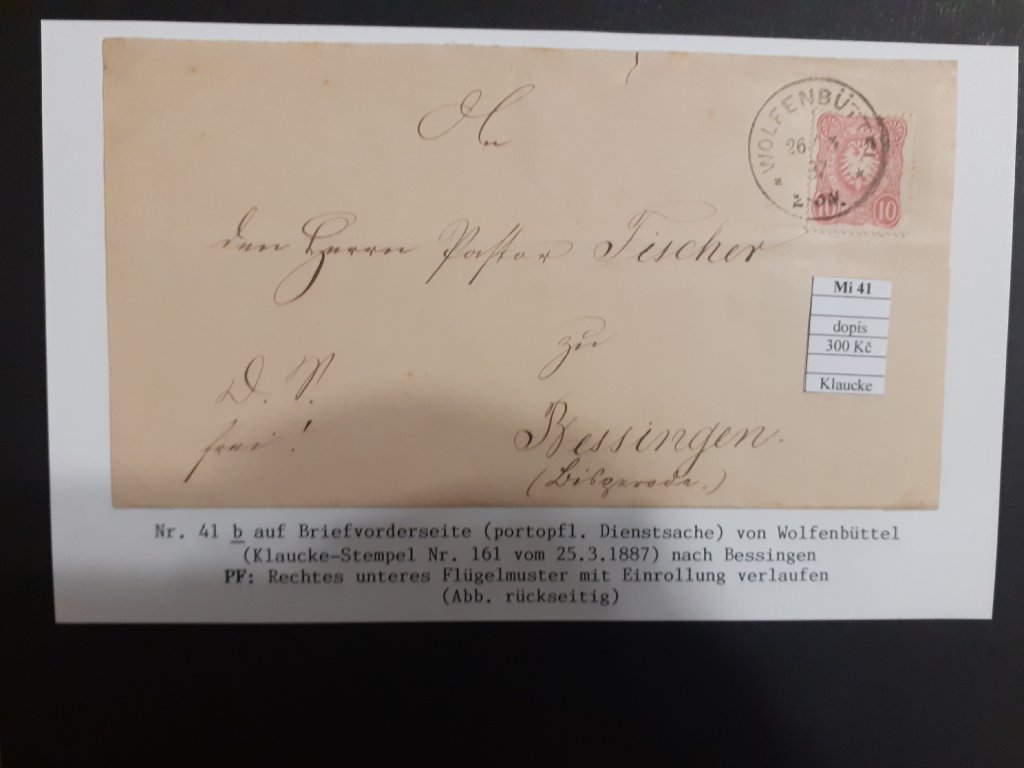 An
WOLFENBÜTTEL
26 3 87
2-3N.
10
den Herrn Pastor Tischer
zu
Bessingen.
(Bisperode.)
D. S.
frei!
Mi 41
dopis
300 Kč
Klaucke
Nr. 41 b auf Briefvorderseite (portopfl. Dienstsache) von Wolfenbüttel
(Klaucke-Stempel Nr. 161 vom 25.3.1887) nach Bessingen
PF: Rechtes unteres Flügelmuster mit Einrollung verlaufen
(Abb. rückseitig)